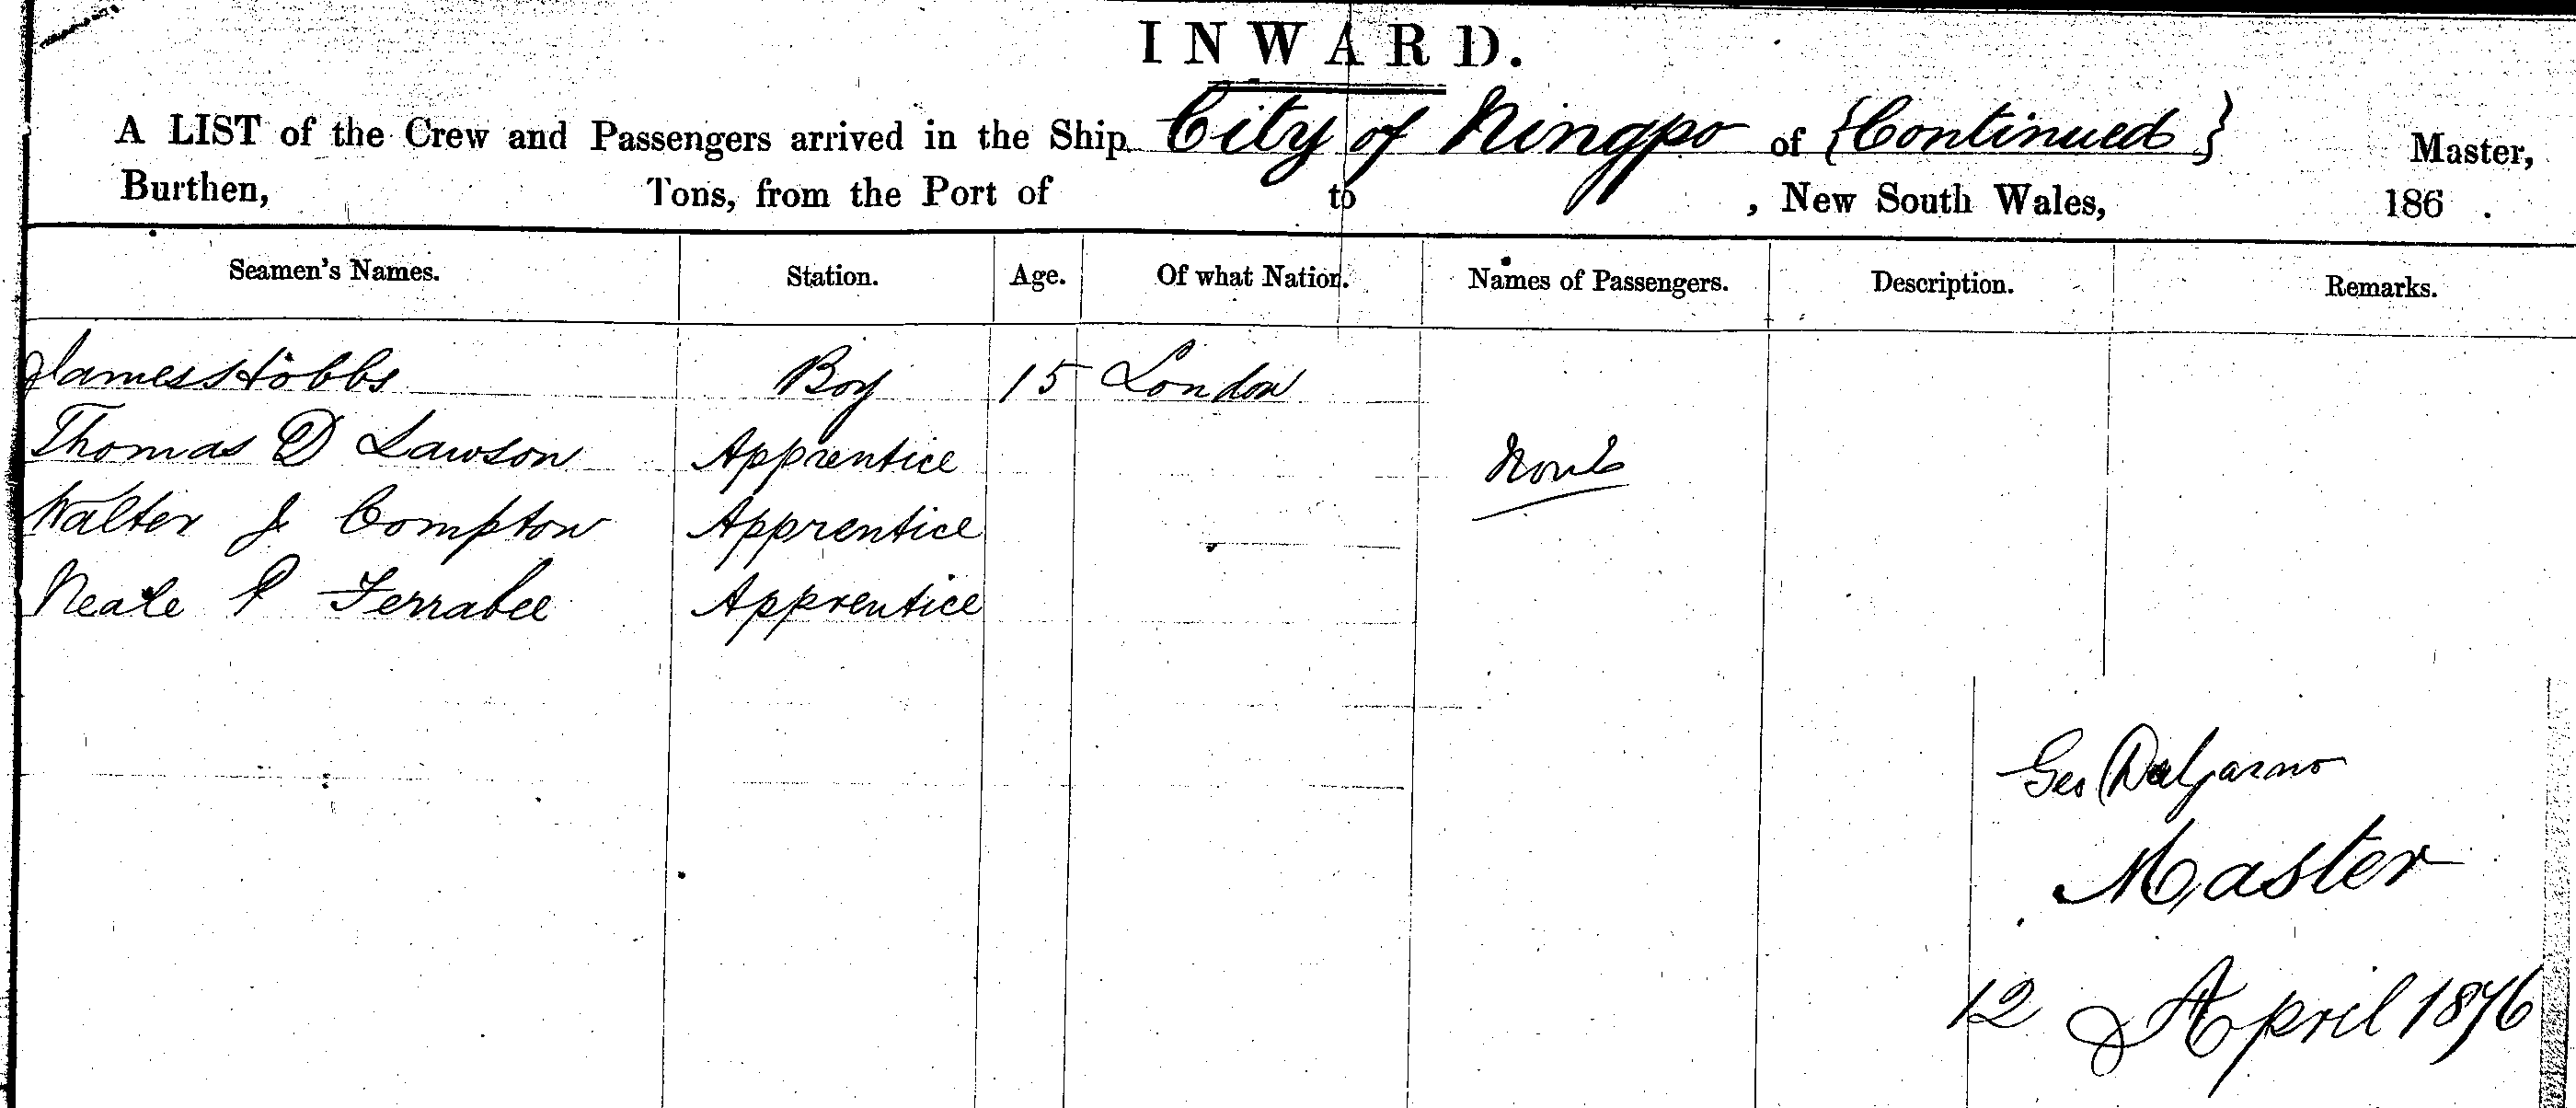 INWARD.
A LIST of the Crew and Passengers arrived in the Ship City of Ningpo of {Continued} Master,
Burthen, Tons, from the Port of to , New South Wales, 186 .
Seamen's Names. Station. Age. Of what Nation. Names of Passengers. Description. Remarks.
James Hobbs Boy 15 London
Thomas D Lawson Apprentice None
Walter J Compton Apprentice
Neale P Ferrabee Apprentice
Geo Dalgarno
Master
12 April 1876